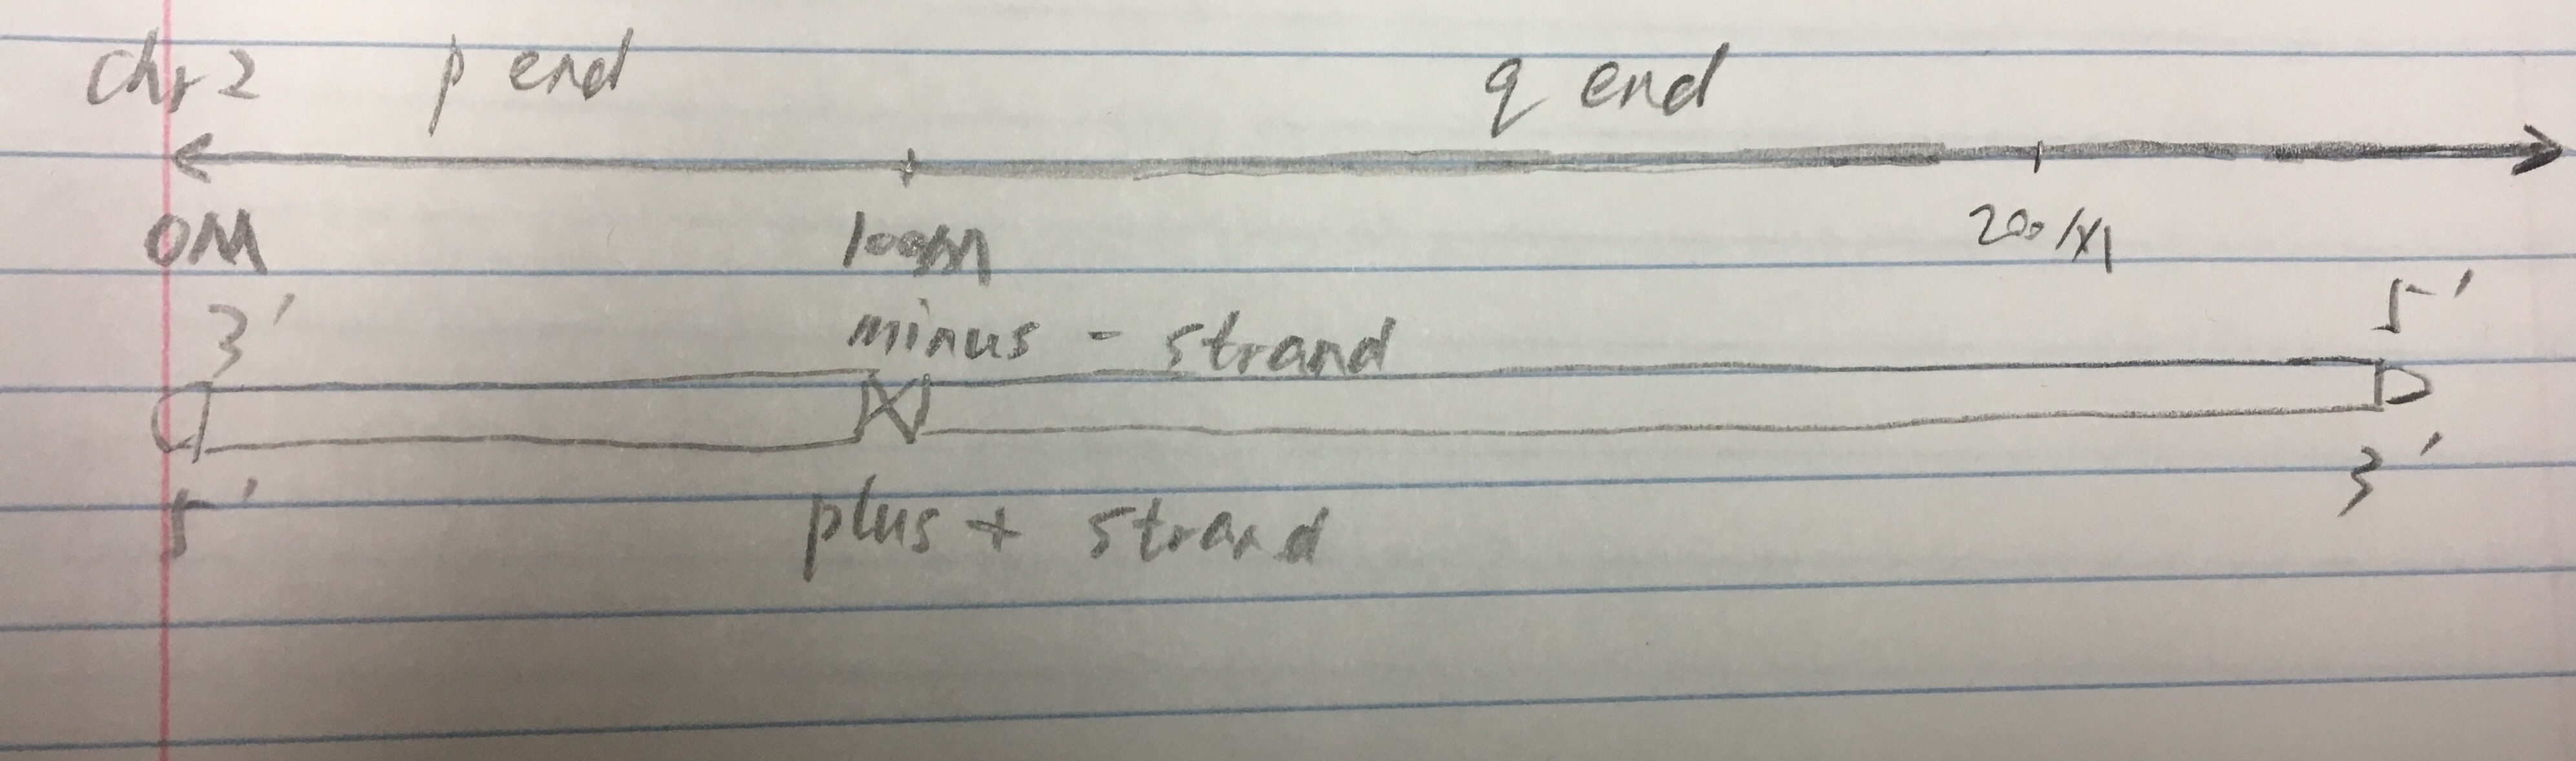 chr 2 p end q end
0M 100M 200M
3' minus - strand 5'
5' plus + strand 3'